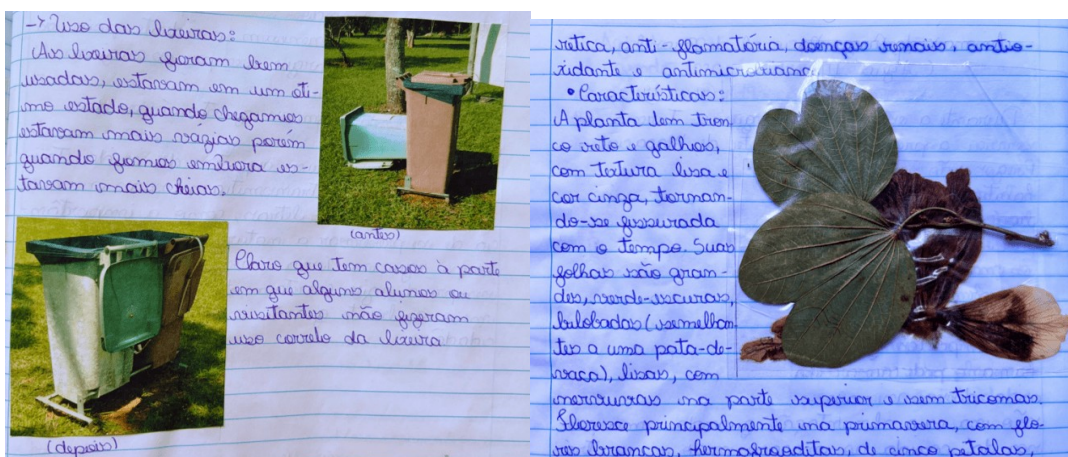 → Uso das lixeiras:
As lixeiras foram bem
usadas, estavam em um óti-
mo estado, quando chegamos
estavam mais vázias porém
quando fomos embora es-
tavam mais cheias.
(antes)
Claro que tem casos à parte
em que alguns alunos ou
visitantes não fizeram
uso correto da lixeira
(depois)
rética, anti-flamatória, doenças renais, antio-
xidante e antimicrobiana
• Características:
A planta tem tron-
co reto e galhos,
com textura lisa e
cor cinza, tornan-
do-se fissurada
com o tempo. Suas
folhas são gran-
des, verde-escuras,
bilobadas (semelhan
tes a uma pata-de-
vaca), lisas, com
nervuras na parte superior e sem tricomas.
Floresce principalmente na primavera, com flo-
res brancas, hermafroditas, de cinco pétalas,